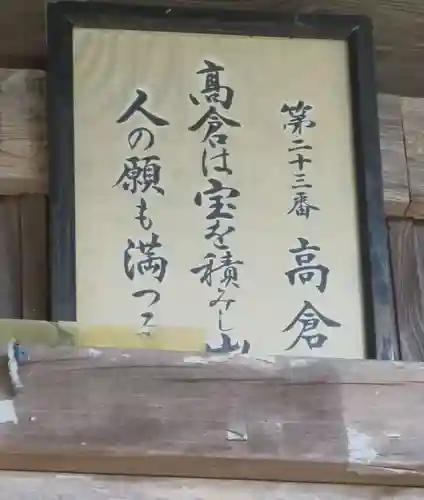 第二十三番 高倉
高倉は宝を積みし山
人の願も満つ